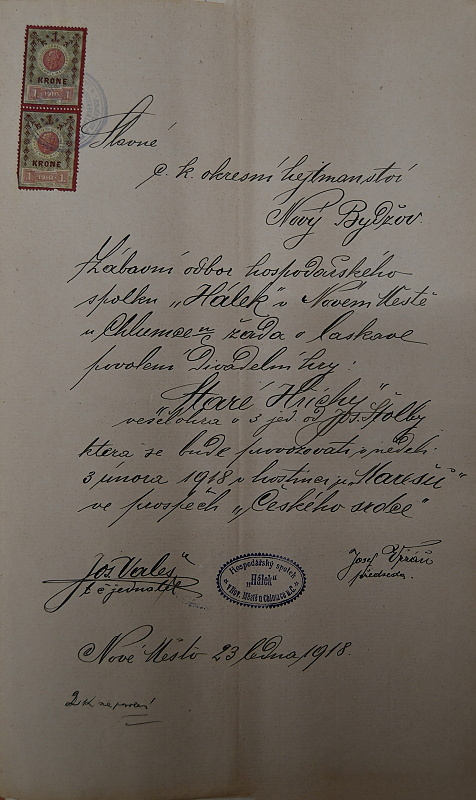 1
KRONE
1 1910 1
1
KRONE
1 1910 1
Slavné
c. k. okresní hejtmanství
Nový Bydžov.
Zábavní odbor hospodářského
spolku „Hálek" v Novém Městě
u Chlumce n/C žádá o laskavé
povolení divadelní hry:
„Staré Hříchy"
veselohra o 3 jed. od Jos. Štolby
která se bude provozovati v neděli
3 února 1918 v hostinci p.
ve prospěch „Českého srdce"
Jos. Vereš
t č jednatel
Hospodářský spolek
„Hálek"
v Nov. Městě u Chlumce n. C.
Josef
předseda
Nové Město 23 ledna 1918.
2 K na